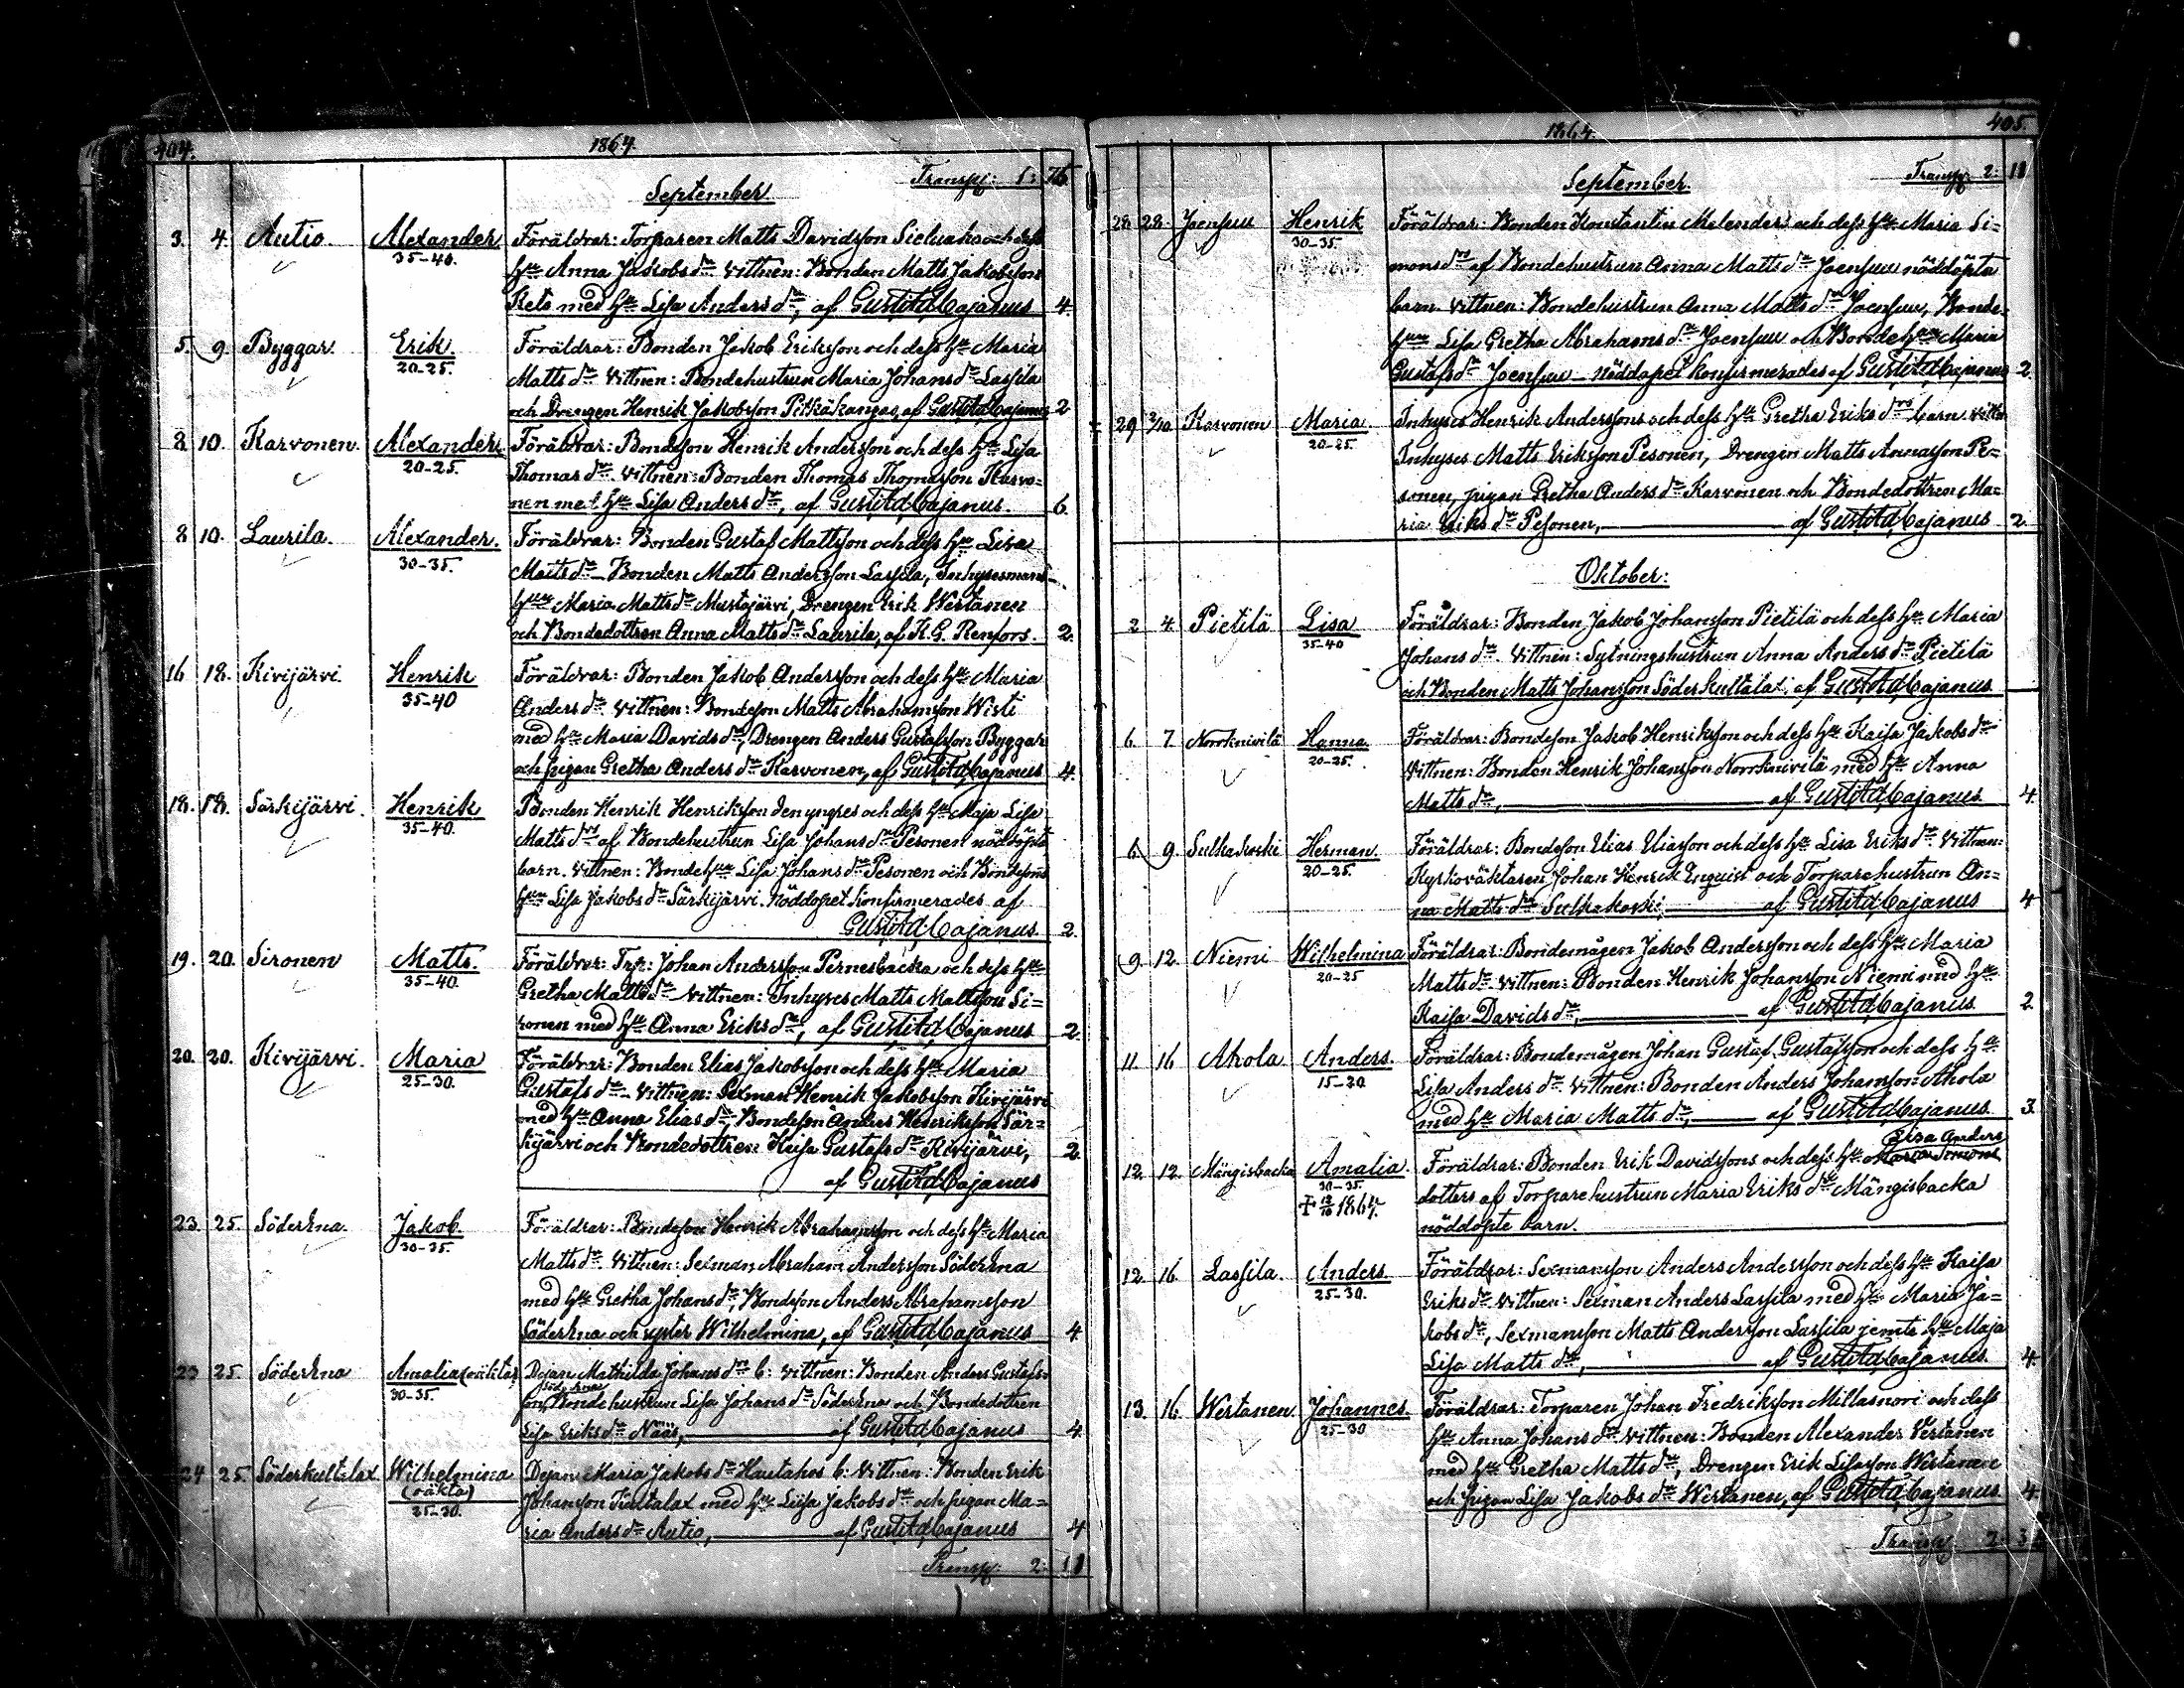 404. 1864.
September Transp: 1: 76
3. 4. Autio. Alexander Föräldrar: Torparen Matts Davidsson Sieluaho och dess
35-40. hu Anna Jakobs dr Vittnen: Bonden Matts Jakobsson
Keto med hu Lisa Anders dr, af Gust. Ad. Cajanus 4.
5. 9. Byggar. Erik. Föräldrar: Bonden Jakob Eriksson och dess hu Maria
20-25. Matts dr Vittnen: Bondehustrun Maria Johans dr Lassila
och Drengen Henrik Jakobsson Pitkäkangas, af Gust. Ad. Cajanus 2
8 10. Karvonen. Alexander. Föräldrar: Bondeson Henrik Andersson och dess hu Lisa
20-25. Thomas dr Vittnen: Bonden Thomas Thomasson Karvo-
nen med hu Lisa Anders dr, af Gust. Ad. Cajanus. 6.
8 10. Laurila. Alexander. Föräldrar: Bonden Gustaf Mattsson och dess hu Lisa
30-35. Matts dr – Bonden Matts Andersson Lassila, Inhysesmans-
hun Maria Matts dr Mustajärvi, Drengen Erik Wertanen
och Bondedottren Anna Matts dr Laurila, af K. G. Renfors. 2.
16 18. Kivijärvi. Henrik Föräldrar: Bonden Jakob Andersson och dess hu Maria
35-40 Anders dr Vittnen: Bondeson Matts Abrahamsson Wisti
med hu Maria Davids dr, Drengen Anders Gustafsson Byggar
och pigan Gretha Anders dr Karvonen, af Gust. Ad. Cajanus 4.
18. 18. Särkijärvi. Henrik Bonden Henrik Henriksson den yngres och dess hu Maja Lisa
35-40. Matts drs af Bondehustrun Lisa Johans dr Pesonen nöddöpta
barn. Vittnen: Bondehun Lisa Johans dr Pesonen och Bondesons
hun Lisa Jakobs dr Särkijärvi. Nöddopet konfirmerades af
Gust. Ad. Cajanus. 2.
19. 20. Sironen Matts. Föräldrar: Trp: Johan Andersson Pernesbacka och dess hu
35-40. Gretha Matts dr Vittnen: Inhyses Matts Mattsson Si-
ronen med hu Anna Eriks dr, af Gust. Ad. Cajanus 2.
20. 20. Kivijärvi. Maria Föräldrar: Bonden Elias Jakobsson och dess hu Maria
25-30. Gustafs dr – Vittnen: Sexman Henrik Jakobsson Kivijärvi
med hu Anna Elias dr, Bondeson Anders Henriksson Sär-
kijärvi och Bondedottren Kaisa Gustafs dr Kivijärvi, 2.
af Gust. Ad. Cajanus
23. 25. Söderkna. Jakob. Föräldrar: Bondeson Henrik Abrahamsson och dess hu Maria
30-35. Matts dr. Vittnen: Sexman Abraham Andersson Söderkna
med hu Gretha Johans dr, Bondeson Anders Abrahamsson
Söderkna och syster Wilhelmina, af Gust. Ad. Cajanus 4
23 25. Söderkna Amalia (oäkta) Dejan Mathilda Johans drs b: Vittnen: Bonden Anders Gustafs-
30-35. son Söderkna, Bondehustrun Lisa Johans dr Söderkna och Bondedottren
Lisa Eriks dr Nääs, af Gust. Ad. Cajanus 4.
24 25. Söderkultalax Wilhelmina Dejan Maria Jakobs dr Hautahos b: Vittnen: Bonden Erik
(oäkta) Johansson Kultalax med hu Lisa Jakobs dr och pigan Ma-
25-30. ria Anders dr Autio, af Gust. Ad. Cajanus 4
Transp: 2: 11
1864. 405.
September. Transp: 2: 11
28 28. Joensuu Henrik Föräldrar: Bonden Konstantin Melenders och dess hu Maria Si-
30-35. mons drs af Bondehustrun Anna Matts dr Joensuu nöddöpta
barn. Vittnen: Bondehustrun Anna Matts dr Joensuu, Bonde-
hun Lisa Gretha Abrahams dr Joensuu och Bondehun Maria
Gustafs dr Joensuu – Nöddopet konfirmerades af Gust. Ad. Cajanus 2.
29 2/10. Karvonen Maria Inhyses Henrik Anderssons och dess hu Gretha Eriks drs barn. Vittn:
20-25. Inhyses Matts Eriksson Pesonen, Drengen Matts Annasson Pe-
sonen, pigan Gretha Anders dr Karvonen och Bondedottren Ma-
ria Eriks dr Pesonen, af Gust. Ad. Cajanus 2.
Oktober:
2 4. Pietilä Lisa Föräldrar: Bonden Jakob Johansson Pietilä och dess hu Maria
35-40 Johans dr. Vittnen: Sytningshustrun Anna Anders dr Pietilä
och Bonden Matts Johansson Söderkultalax, af Gust. Ad. Cajanus
6. 7. Norrknivilä Hanna. Föräldrar: Bondeson Jakob Henriksson och dess hu Kaisa Jakobs dr
20-25. Vittnen: Bonden Henrik Johansson Norrknivilä med hu Anna
Matts dr, af Gust. Ad. Cajanus 4.
6. 9. Sulkakoski Herman. Föräldrar: Bondeson Elias Eliasson och dess hu Lisa Eriks dr Vittnen:
20-25. Kyrkoväktaren Johan Henrik Enquist och Torparehustrun An-
na Matts dr Sulkakoski, af Gust. Ad. Cajanus 4
9. 12. Niemi Wilhelmina Föräldrar: Bondemågen Jakob Andersson och dess hu Maria
20-25 Matts dr. Vittnen: Bonden Henrik Johansson Niemi med hu
Kaisa Davids dr, af Gust. Ad. Cajanus 2.
11. 16 Ahola Anders. Föräldrar: Bondemågen Johan Gustaf Gustafsson och dess hu
15-20. Lisa Anders dr. Vittnen: Bonden Anders Johansson Ahola
med hu Maria Matts dr, af Gust. Ad. Cajanus. 3.
Lisa Anders
12. 12. Mängisbacka Amalia. Föräldrar: Bonden Erik Davidssons och dess hu Maria Simons
30-35. dotters af Torparehustrun Maria Eriks dr Mängisbacka
+ 12/10 1864. nöddöpte barn.
12. 16. Lassila. Anders. Föräldrar: Sexmansson Anders Andersson och dess hu Kaisa
25-30. Eriks dr. Vittnen: Sexman Anders Lassila med hu Maria Ja-
kobs dr, Sexmansson Matts Andersson Lassila jemte hu Maja
Lisa Matts dr, af Gust. Ad. Cajanus. 4.
13. 16. Wertanen Johannes. Föräldrar: Torparen Johan Fredriksson Millasnori och dess
25-30 hu Anna Johans dr. Vittnen: Bonden Alexander Vertanen
med hu Gretha Matts dr, Drengen Erik Lisasson Wertanen
och pigan Lisa Jakobs dr Wertanen, af Gust. Ad. Cajanus 4.
Transp. 2: